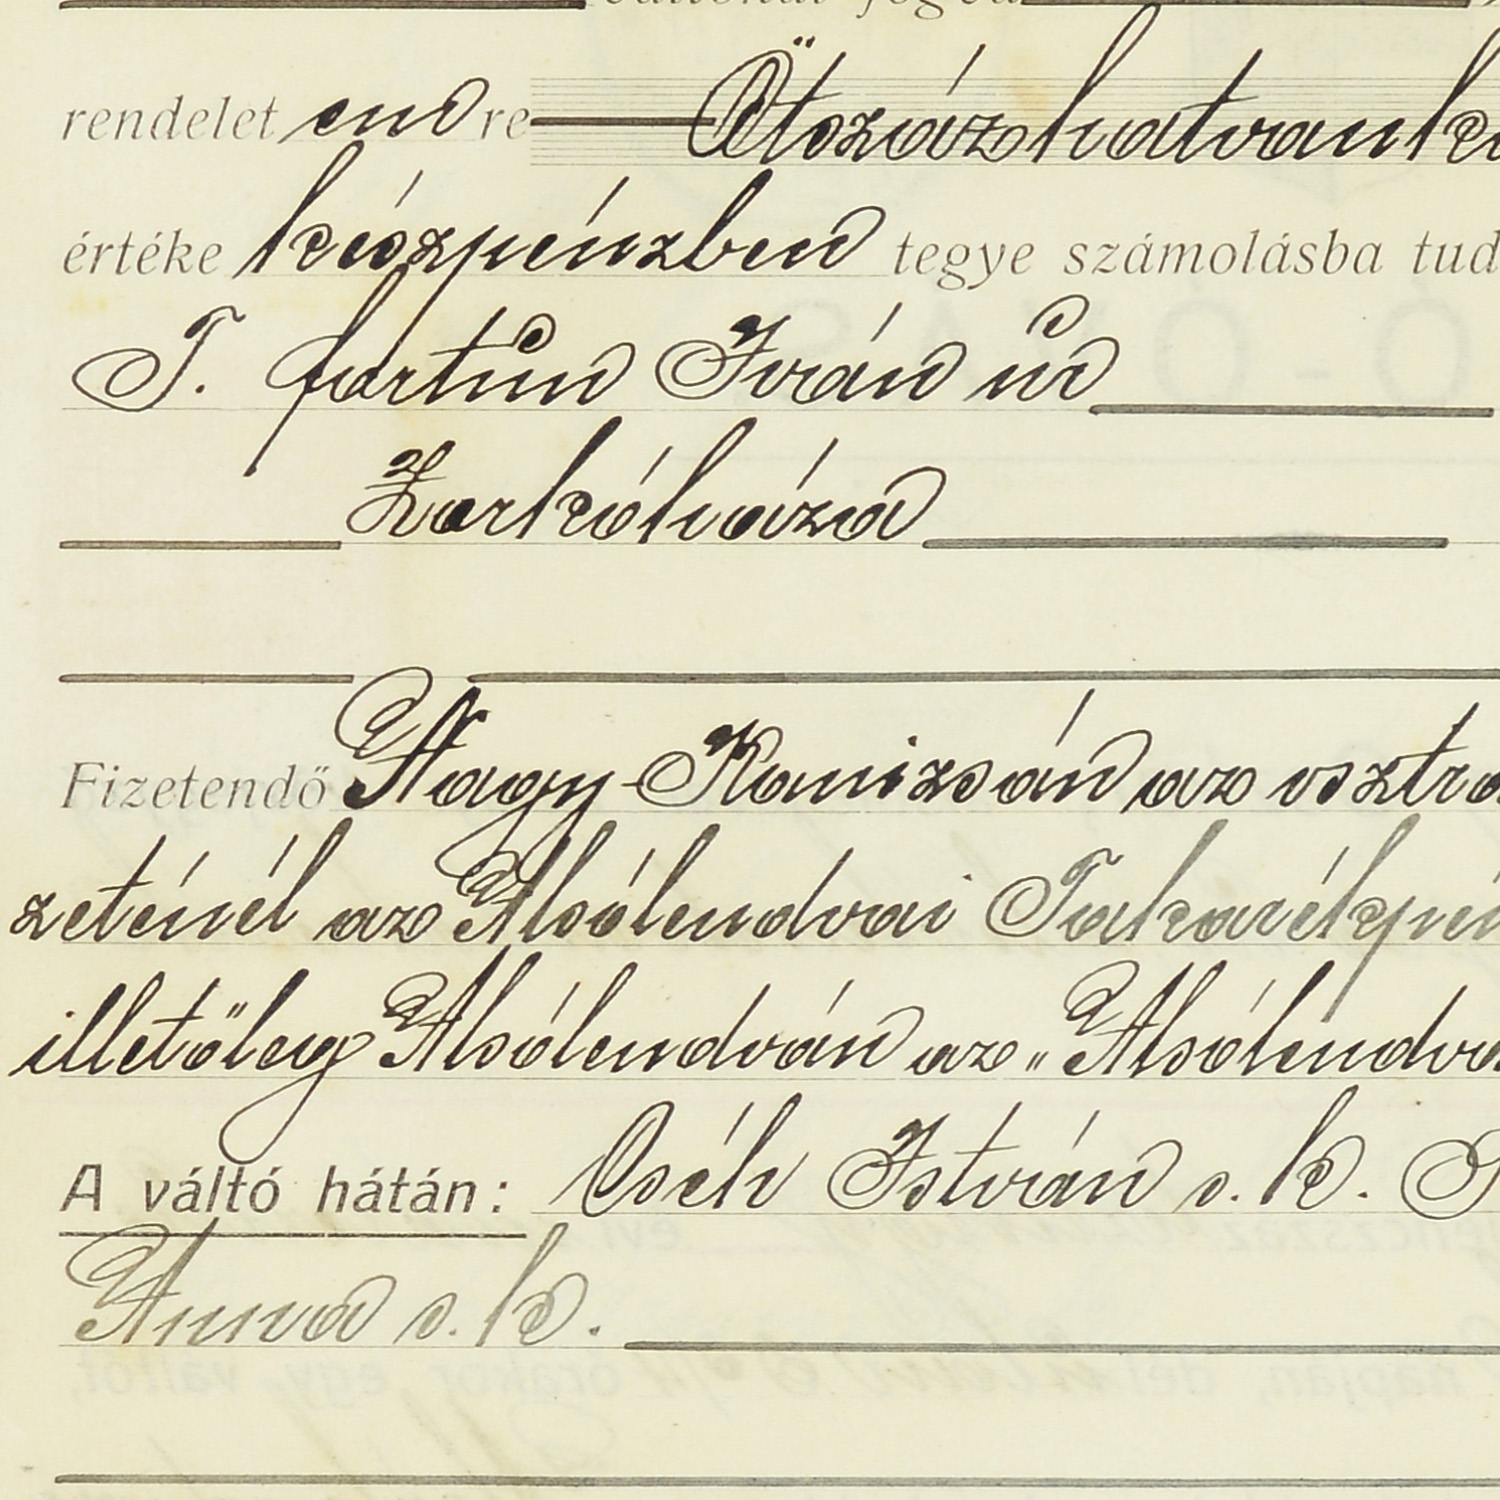 váltónál fogva
rendelet end re Ötszázhatvank
értéke készpénzben tegye számolásba tud
T. Fartun Iván úr
Zarkóháza
Fizetendő Nagy-Kanizsán az osztrá
zeténél az Alsólendvai Takarékpén
illetőleg Alsólendván az „Alsólendva
A váltó hátán: Cséh István s. k.
Anna s. k.